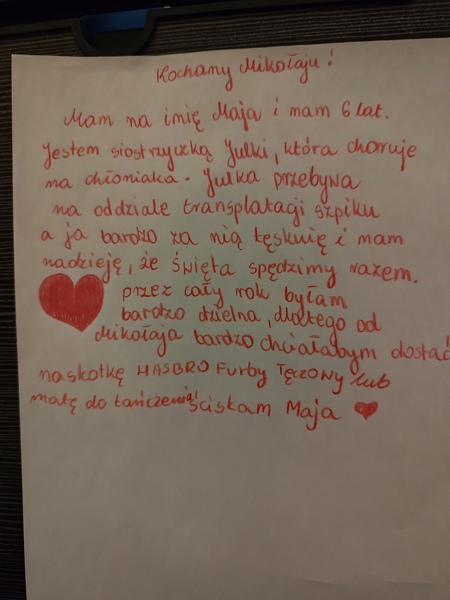 Kochany Mikołaju!
Mam na imię Maja i mam 6 lat.
Jestem siostrzyczką Julki, która choruje
na chłoniaka. Julka przebywa
na oddziale transplatagi szpiku
a ja bardzo za nią tęsknię i mam
nadzieję, że święta spędzimy razem.
przez cały rok byłam
bardzo dzielna, dlatego od
Mikołaja bardzo chciałabym dostać
naskotkę HASBRO Furby Tęczowy lub
matę do tańczenia! ściskam Maja